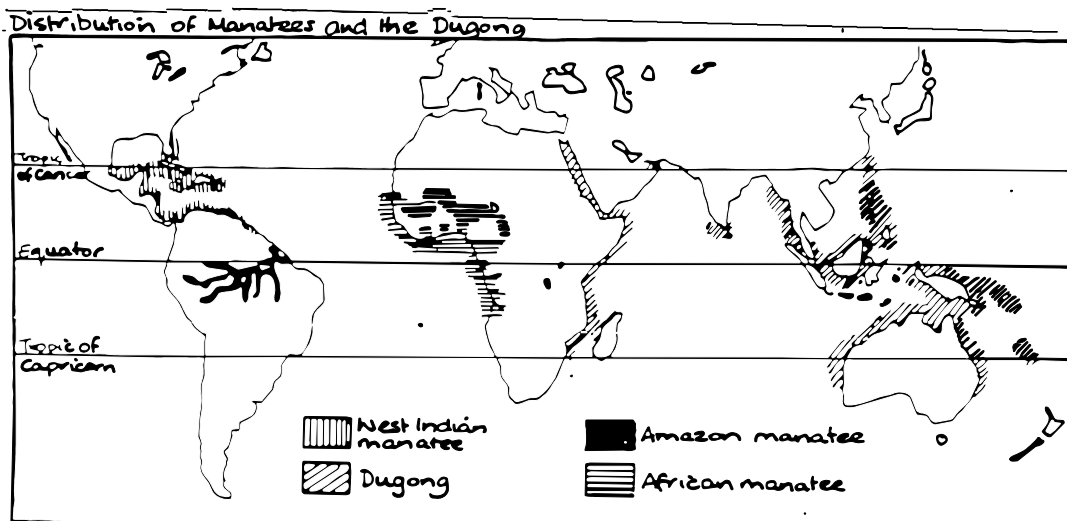 Distribution of Manatees and the Dugong
Tropic
of Cancer
Equator
Tropic of
Capricorn
West Indian
manatee
Dugong
Amazon manatee
African manatee